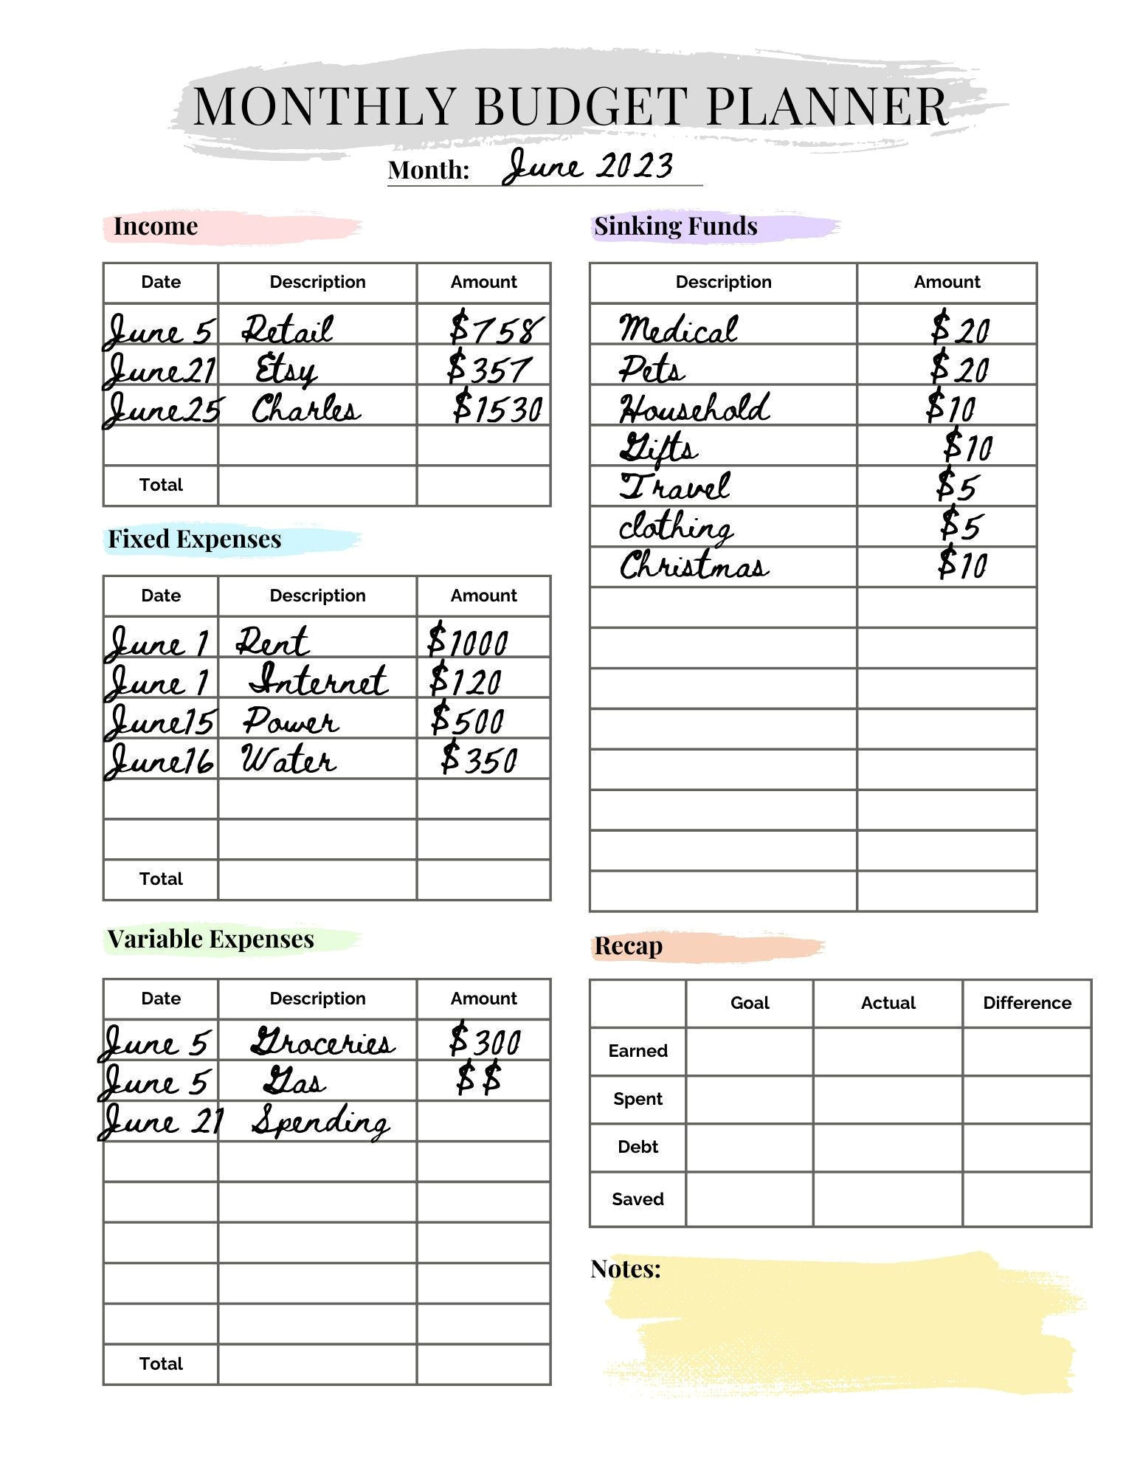 MONTHLY BUDGET PLANNER
Month: June 2023
Income
Date Description Amount
June 5 Retail $758
June 21 Etsy $357
June 25 Charles $1530
Total
Fixed Expenses
Date Description Amount
June 1 Rent $1000
June 1 Internet $120
June 15 Power $500
June 16 Water $350
Total
Variable Expenses
Date Description Amount
June 5 Groceries $300
June 5 Gas $$
June 21 Spending
Total
Sinking Funds
Description Amount
Medical $20
Pets $20
Household $10
Gifts $10
Travel $5
clothing $5
Christmas $10
Recap
Goal Actual Difference
Earned
Spent
Debt
Saved
Notes: